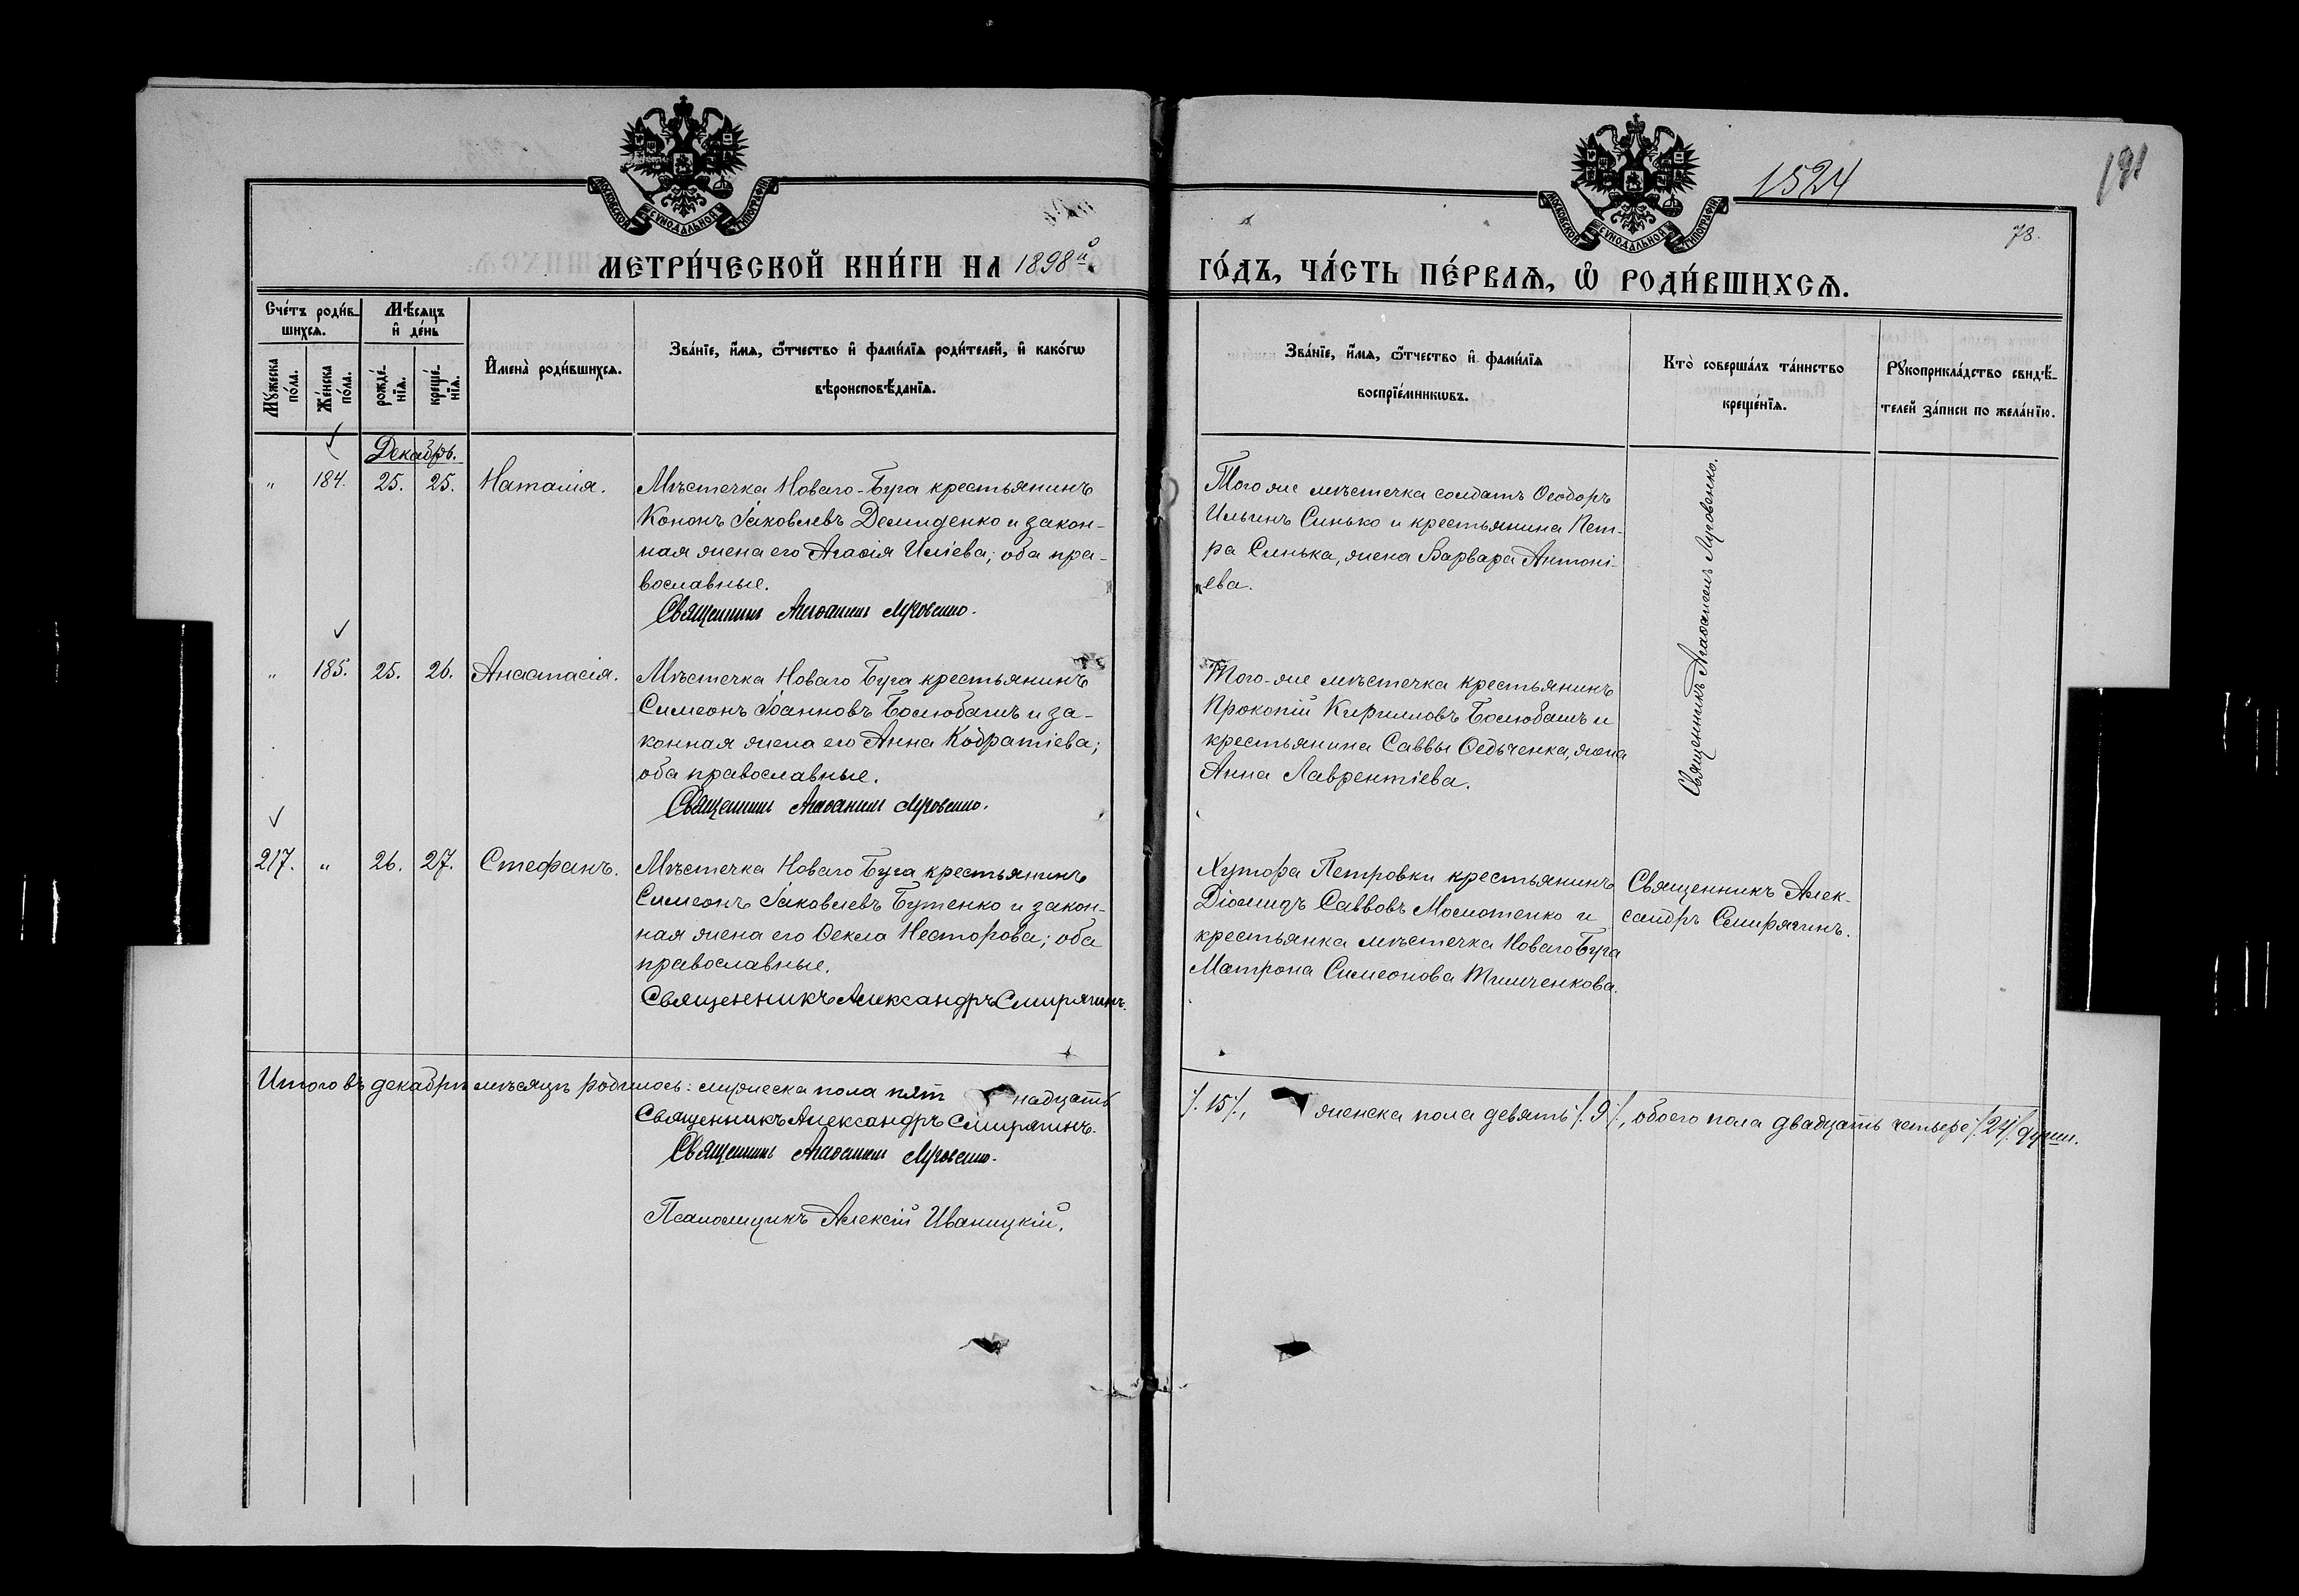 1524
191
78.
МОСКОВСКОЙ СѴНОДАЛЬНОЙ ТИПОГРАФІИ
МОСКОВСКОЙ СѴНОДАЛЬНОЙ ТИПОГРАФІИ
МЕТРИ́ЧЕСКОЙ КНИ́ГИ НА 1898й
ГО́ДЪ, ЧА́СТЬ ПЕ́РВАѦ, Ѡ РОДИ́ВШИХСѦ.
Сче́тъ роди́в-
шихсѧ.
Мꙋ́жеска
по́ла.
Же́нска
по́ла.
Мѣ́сѧцъ
и҆ де́нь
рожде́-
нїѧ.
креще́-
нїѧ.
И҆мена̀ роди́вшихсѧ.
Зва́нїе, и҆́мѧ, ѻ҆́тчество и҆ фамилі́ѧ роди́телей, и҆ како́гѡ
вѣроисповѣ́данїѧ.
Зва́нїе, и҆́мѧ, ѻ҆́тчество и҆ фами́лїѧ
воспрїе́мникѡвъ.
Кто̀ соверша́лъ та́инство
креще́нїѧ.
Рꙋкоприкла́дство свидѣ́-
телей за́писи по жела́нїю.
Декабрь.
" 184. 25. 25. Наталія.
Мѣстечка Новаго-Буга крестьянинъ
Кононъ Іаковлевъ Демиденко и закон-
ная жена его Агаѳія Иліева; оба пра-
вославные.
Священникъ Агаѳангелъ Луговенко.
Того же мѣстечка солдатъ Ѳеодоръ
Ильинъ Синько и крестьянина Пет-
ра Синька, жена Варвара Антоні-
ева.
Священникъ Агаѳангелъ Луговенко.
" 185. 25. 26. Анастасія.
Мѣстечка Новаго Буга крестьянинъ
Симеонъ Іоанновъ Болюбашъ и за-
конная жена его Анна Кодратіева;
оба православные.
Священникъ Агаѳангелъ Луговенко.
Того-же мѣстечка крестьянинъ
Прокопій Кирилловъ Болюбашъ и
крестьянина Саввы Ѳедьченка, жена
Анна Лаврентіева.
217. " 26. 27. Стефанъ.
Мѣстечка Новаго Буга крестьянинъ
Симеонъ Іаковлевъ Бутенко и закон-
ная жена его Ѳекла Несторова; оба
православные.
Священникъ Александръ Смирягинъ.
Хутора Петровки крестьянинъ
Діомидъ Саввовъ Молотенко и
крестьянка мѣстечка Новаго Буга
Матрона Симеонова Тимченкова.
Священникъ Алек-
сандръ Смирягинъ.
Итого въ декабрѣ мѣсяцѣ родилось: мужеска пола пят надцать
/. 15 /., женска пола девять /. 9 /., обоего пола двадцать четыре /. 24 /. души.
Священникъ Александръ Смирягинъ.
Священникъ Агаѳангелъ Луговенко.
Псаломщикъ Алексій Иваницкій.